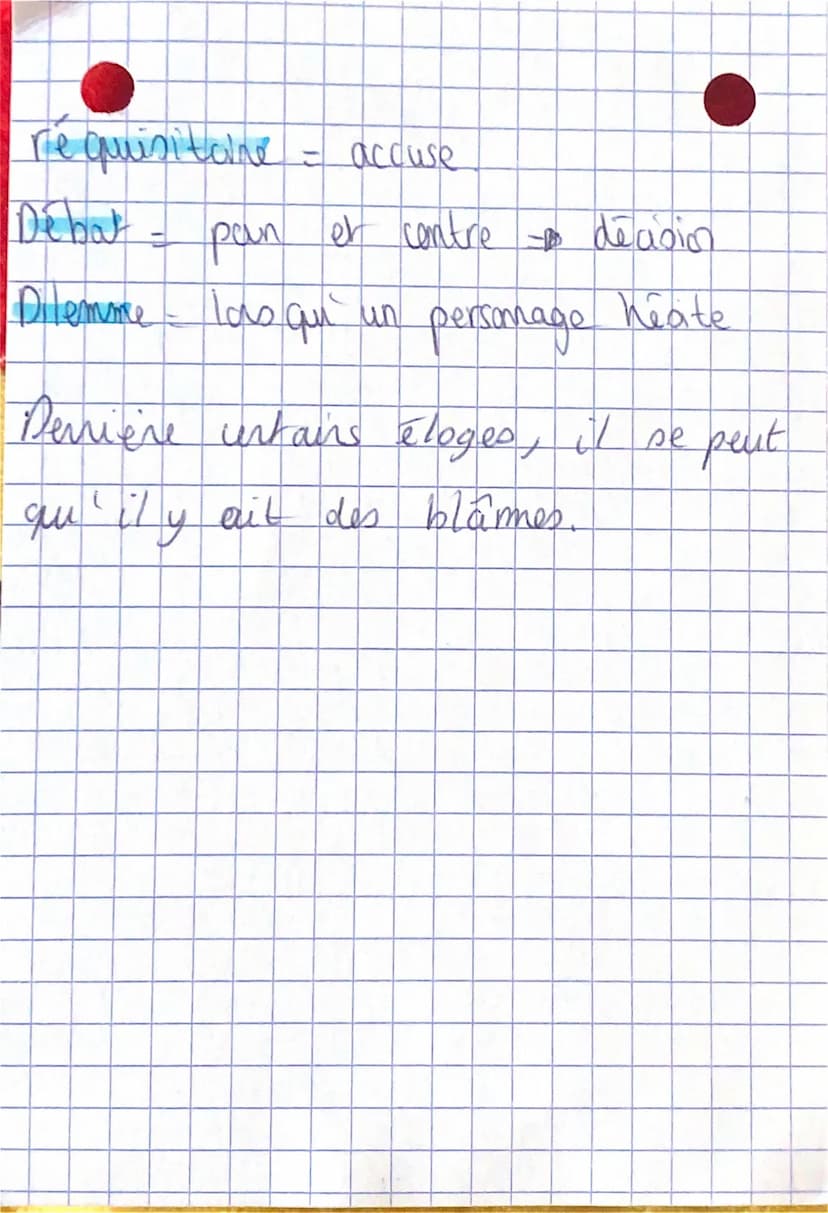 réquisitoire = accuse
Débat = pour et contre → décision
Dilemme = lorsqu'un personnage hésite
Derrière certains éloges, il se peut
qu'il y ait des blâmes.